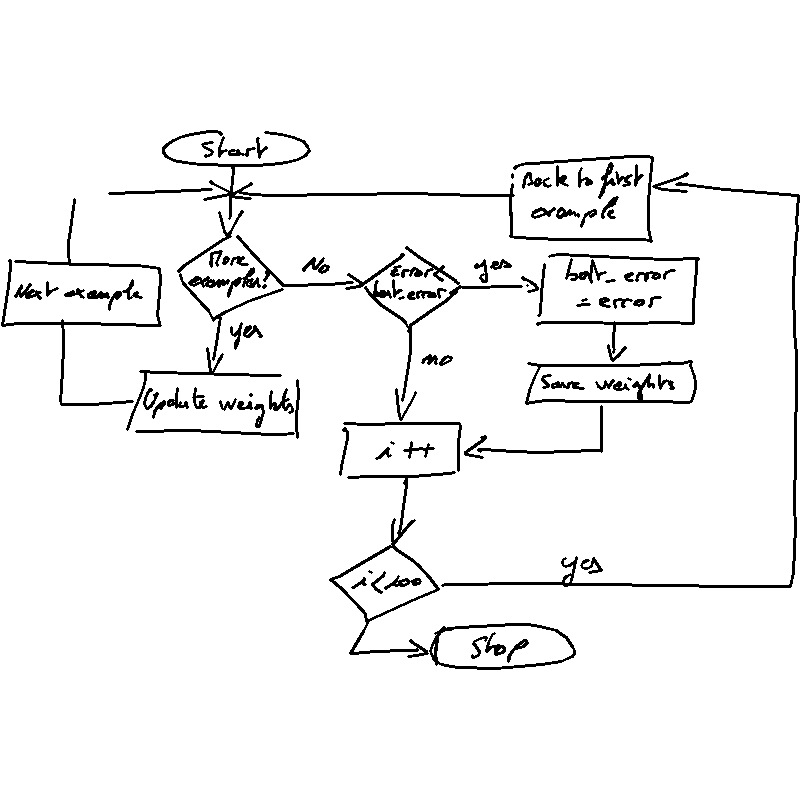 Start
Back to first
example
More
examples?
No
Error<
best_error
yes
best_error
= error
Next example
yes
no
Update weights
Save weights
i ++
i<100
yes
Stop